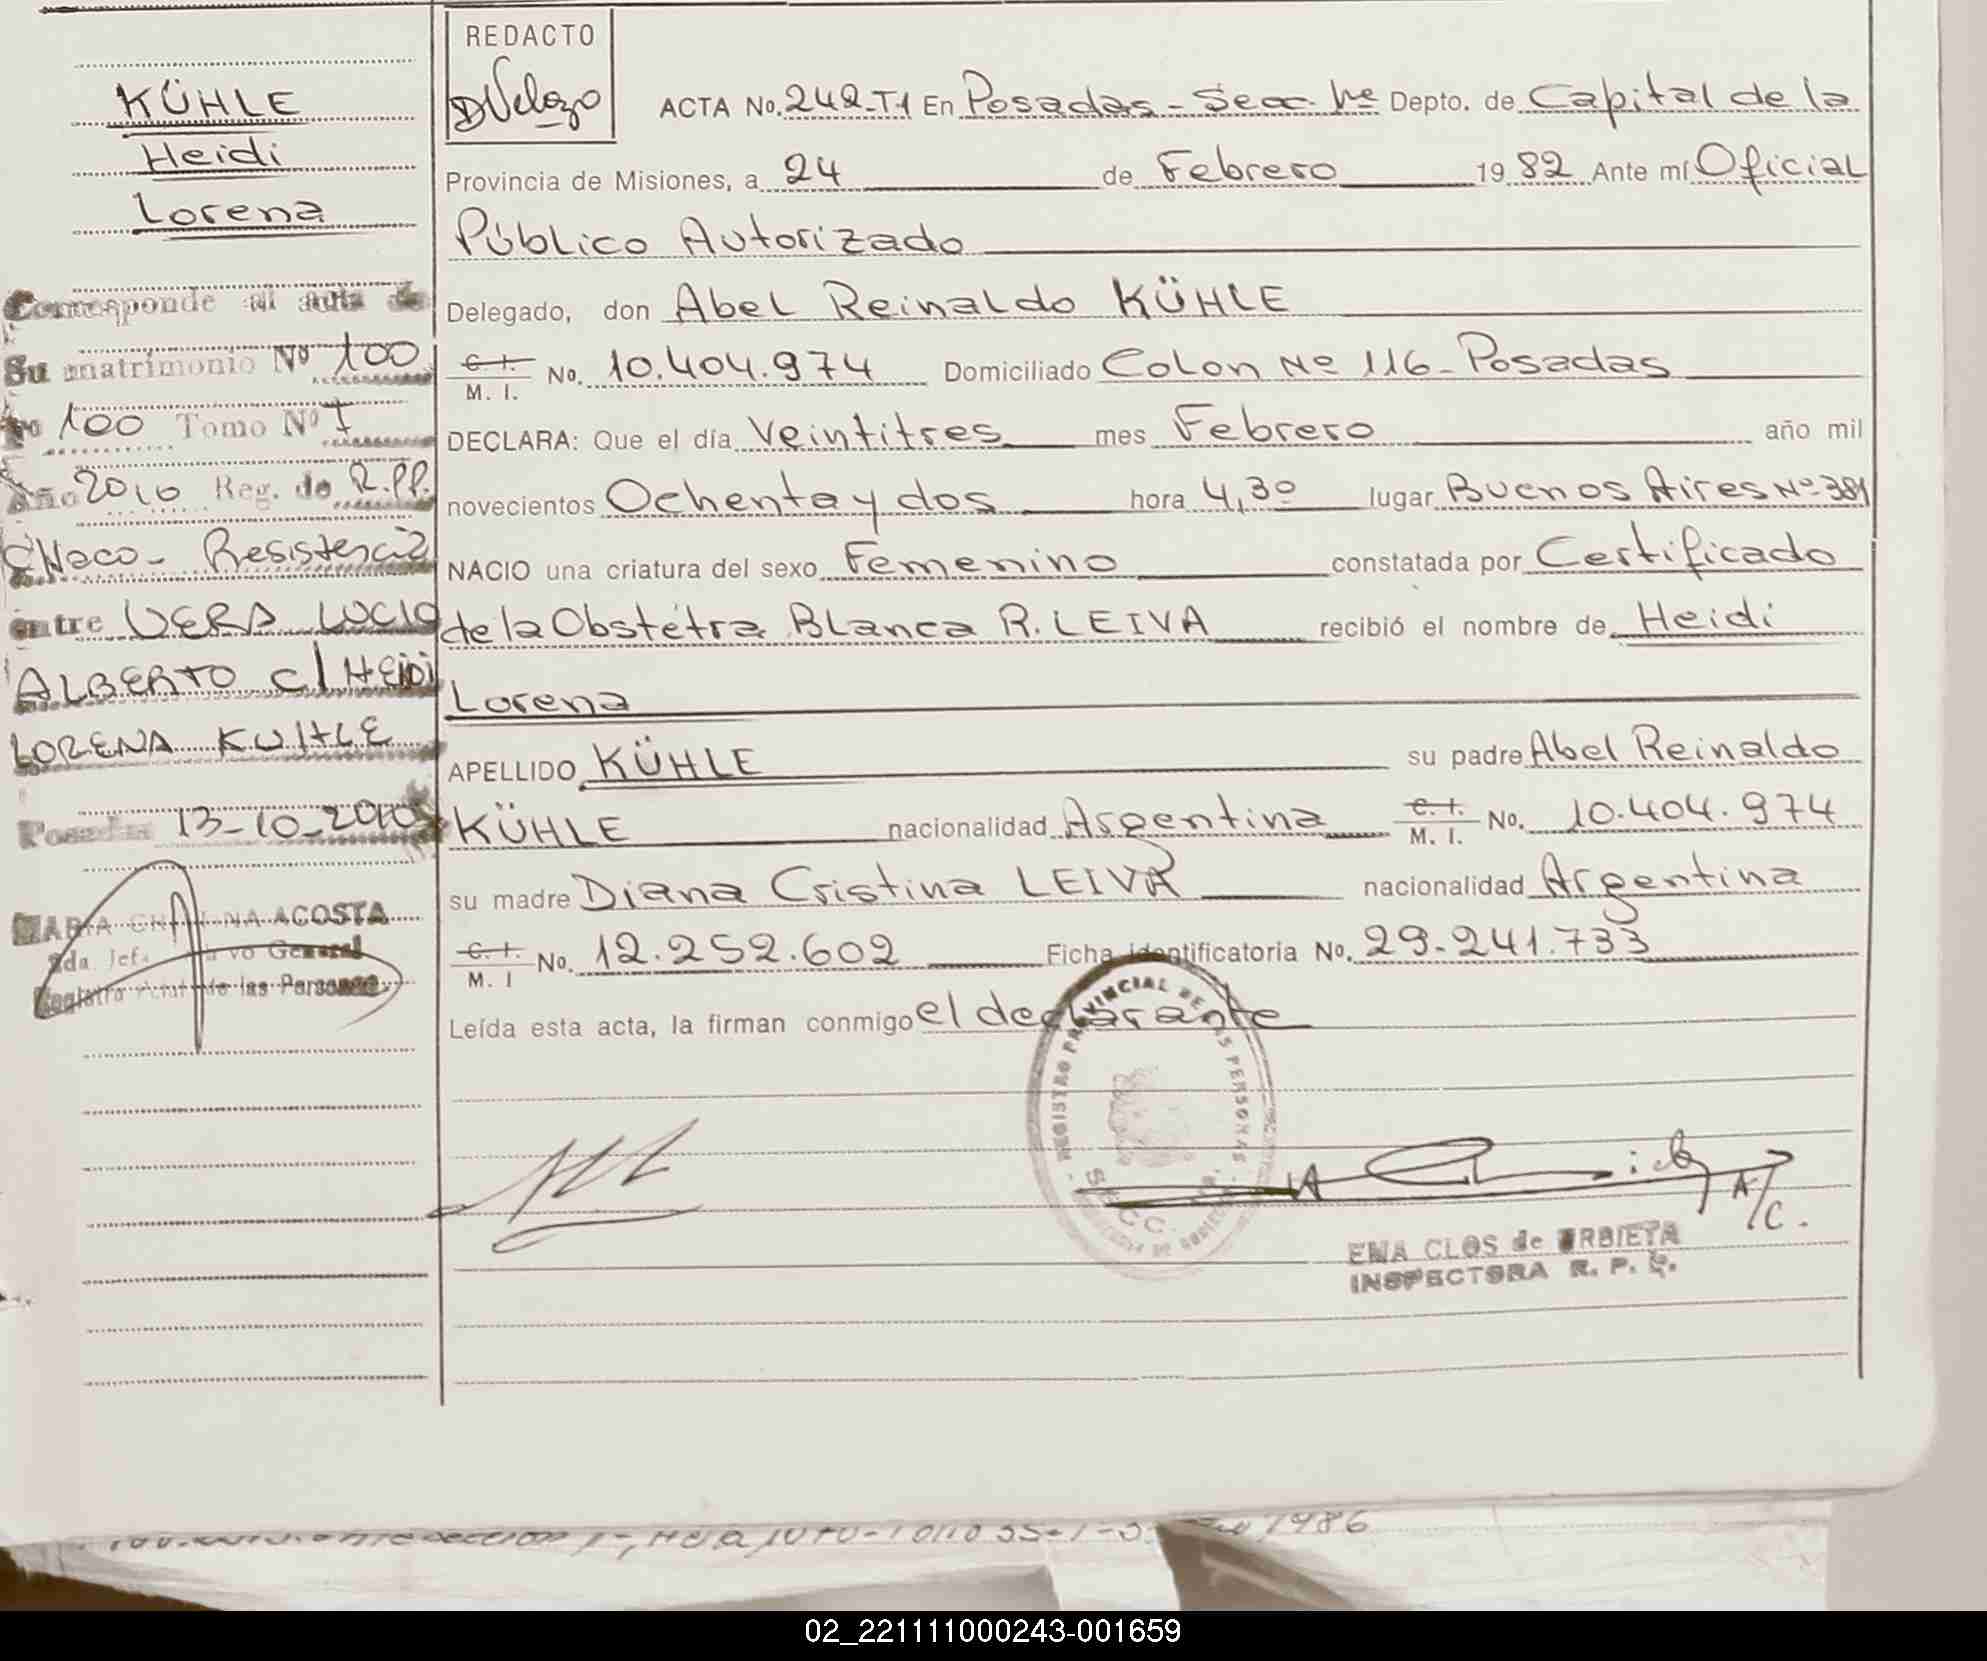 KÜHLE
Heidi
Lorena
Corresponde al acta de
Su matrimonio Nº 100
Fº 100 Tomo Nº I
Año 2010 Reg. de R.PP.
CHaco - Resistencia
entre VERA LUCIO
ALBERTO c/ HEIDI
LORENA KUHLE
Posadas 13-10-2010
MARIA CRISTINA ACOSTA
General
Registro de las Personas
REDACTO
DVelozo
ACTA No. 242-T1 En Posadas - Secc. 1ra Depto. de Capital de la
Provincia de Misiones, a 24 de Febrero 1982 Ante mí Oficial
Público Autorizado
Delegado, don Abel Reinaldo KÜHLE
C. I. / M. I. No. 10.404.974 Domiciliado Colon Nº 116 - Posadas
DECLARA: Que el día Veintitres mes Febrero año mil
novecientos Ochenta y dos hora 4,30 lugar Buenos Aires Nº 381
NACIO una criatura del sexo Femenino constatada por Certificado
de la Obstétra Blanca R. LEIVA recibió el nombre de Heidi
Lorena
APELLIDO KÜHLE su padre Abel Reinaldo
KÜHLE nacionalidad Argentina C. I. / M. I. No. 10.404.974
su madre Diana Cristina LEIVA nacionalidad Argentina
C. I. / M. I No. 12.252.602 Ficha identificatoria No. 29.241.733
Leída esta acta, la firman conmigo el declarante
REGISTRO PROVINCIAL DE LAS PERSONAS
A/C.
EMA CLOS de URBIETA
INSPECTORA R. P. P.
1986
02_221111000243-001659